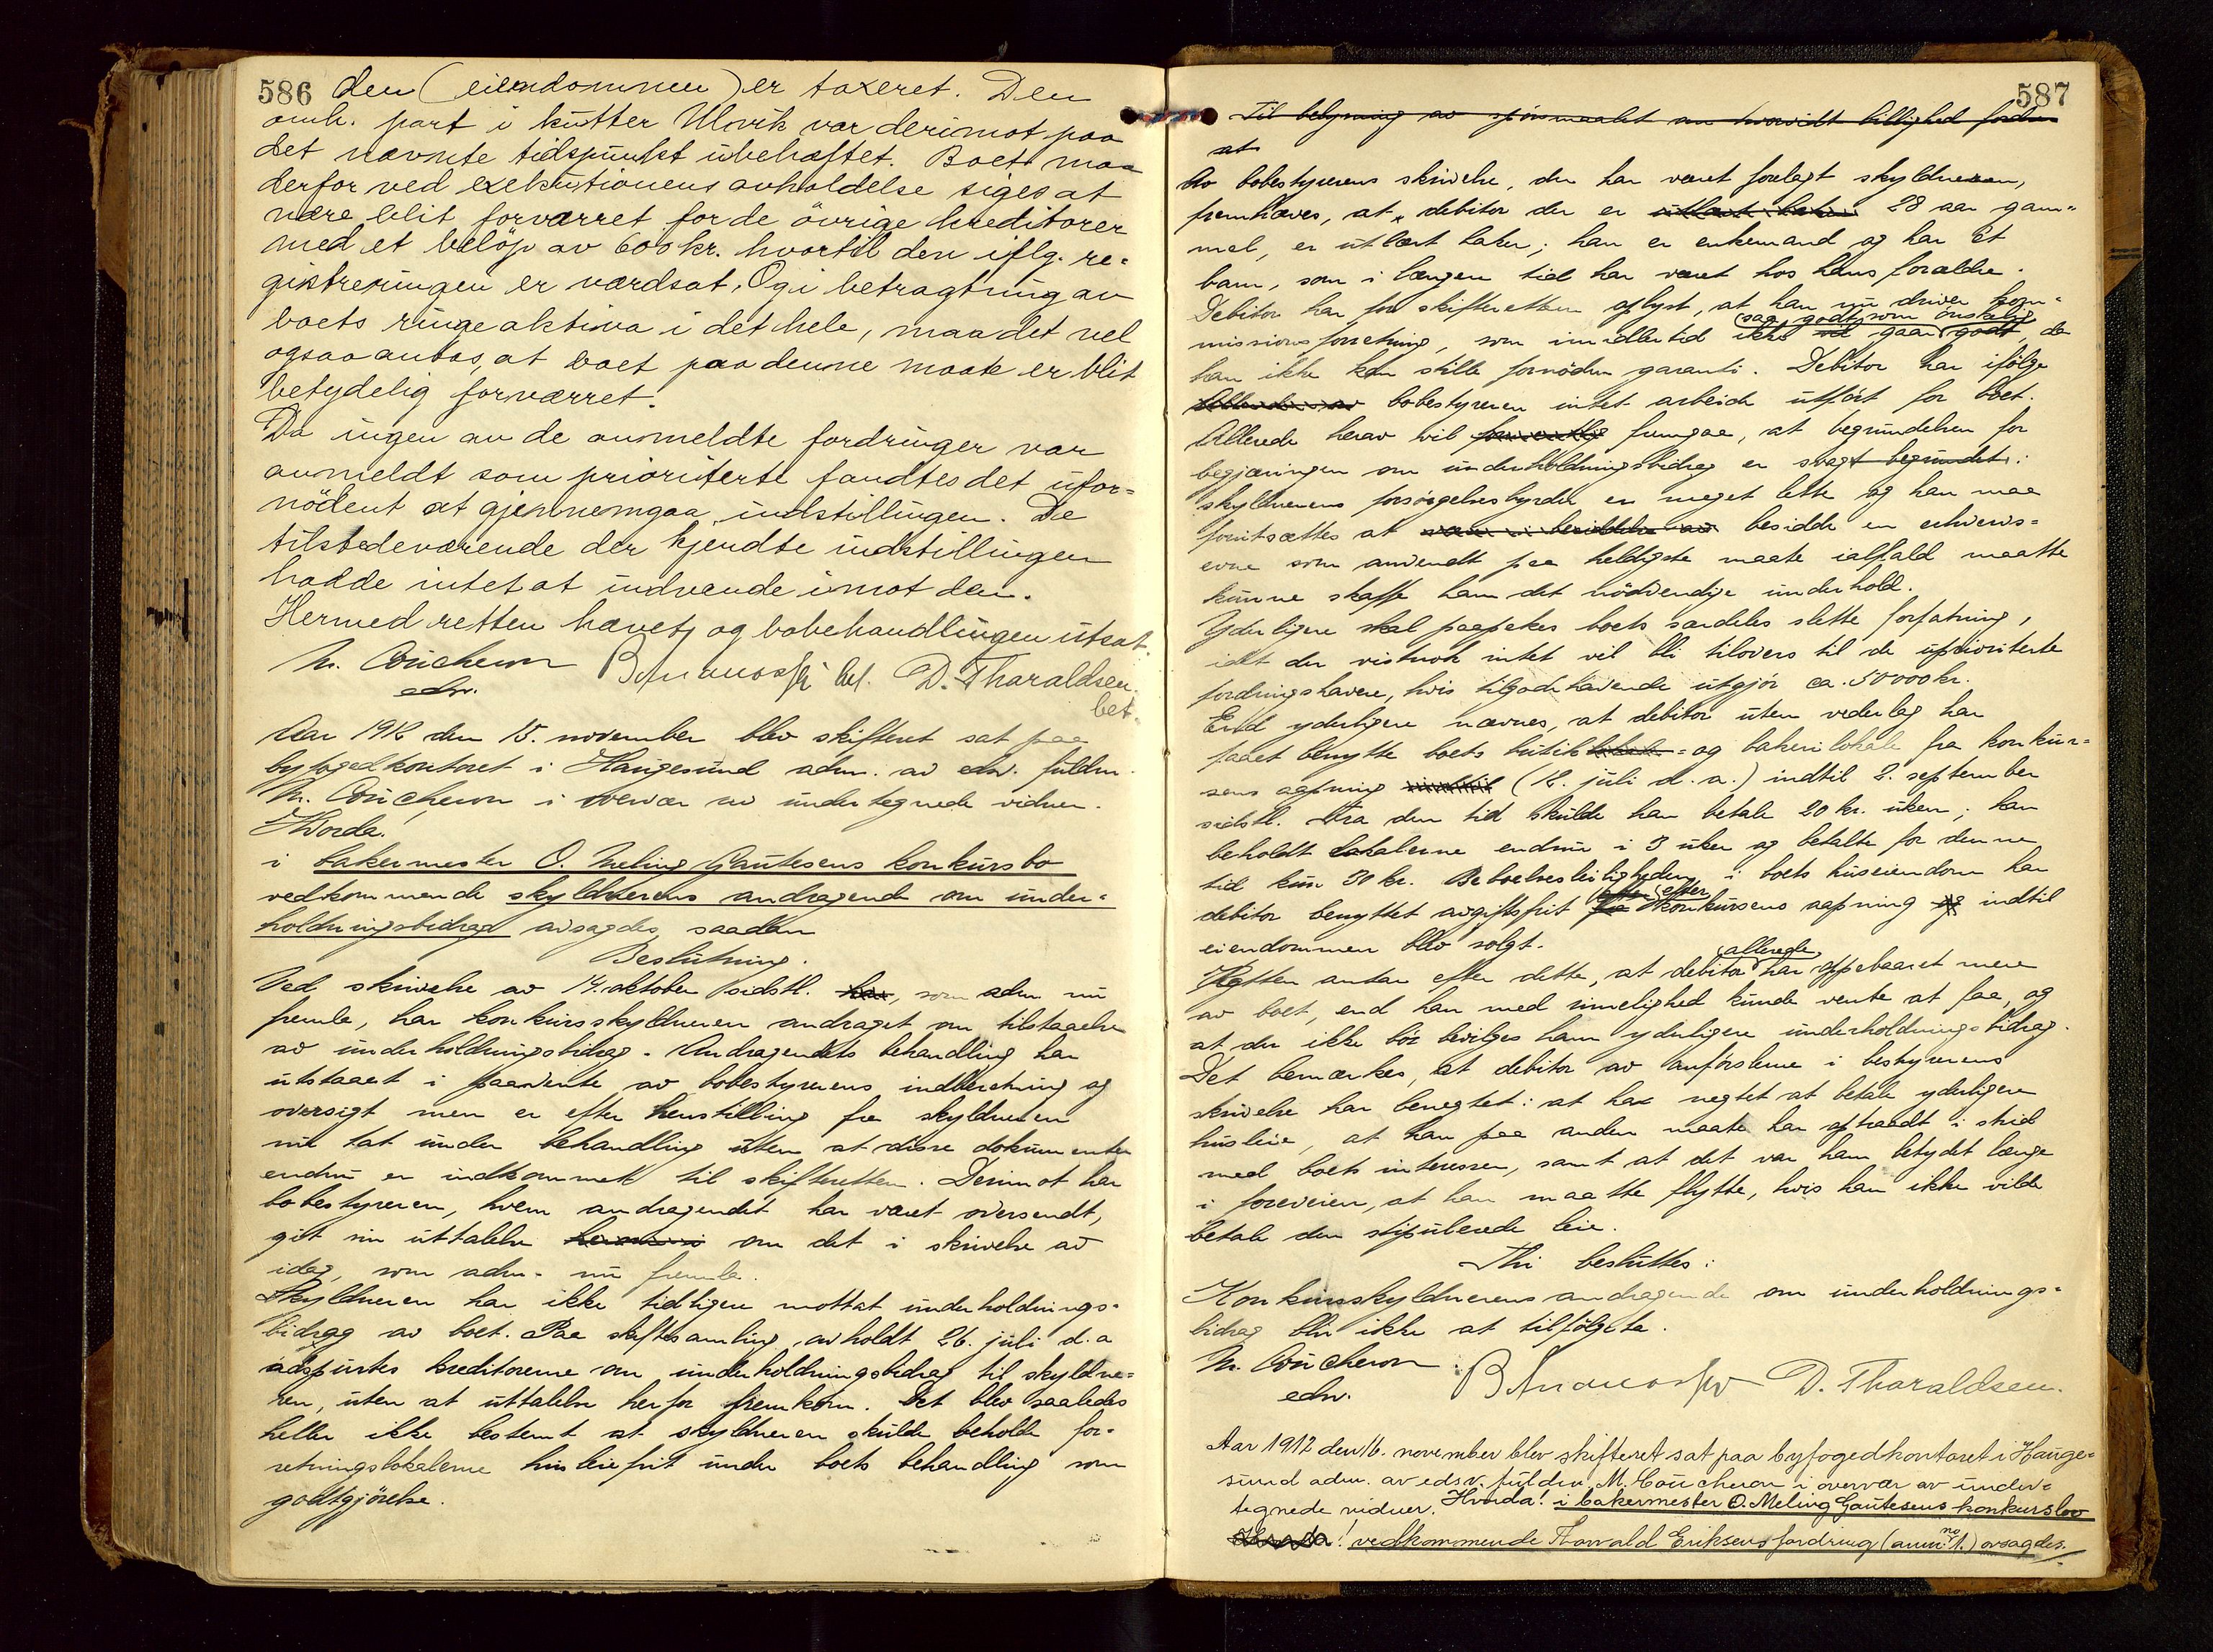 586 den (eiendommen) er taxeret. Den
omh. part i kutter Ulvik var derimot paa
det nævnte tidspunkt ubeheftet. Boet maa
derfor ved exekutionens avholdelse siges at
være blit forværret for de övrige kreditorer
med et belöp av 600 kr. hvortil den iflg. re-
gistreringen er værdsat. Og i betragtning av
boets ringe aktiva i det hele, maa det vel
ogsaa antas, at boet paa denne maate er blit
betydelig forværret.
Da ingen av de anmeldte fordringer var
anmeldt som prioriterte fandtes det ufor-
nödent at gjennemgaa indstillingen. De
tilstedeværende der kjendte indstillingen
hadde intet at indvende imot den.
Hermed retten hævet, og bobehandlingen utsat.
M. Coucheron D. Tharaldsen.
edsv. bet.
Aar 1912 den 15. november blev skifteret sat paa
byfogedkontoret i Haugesund adm. av edsv. fuldm.
M. Coucheron i overvær av undertegnede vidner.
Hvorda.
i bakermester O. Meling Gautesens konkursbo
vedkommende skyldnerens andragende om under-
holdningsbidrag avsagdes saadan
Beslutning.
Ved skrivelse av 14. oktober sidstl. , som adm nu
fremla, har konkursskyldneren andraget om tilstaaelse
av underholdningsbidrag. Andragendets behandling har
utstaaet i paavente av bobestyrerens indberetning og
oversigt men er efter henstilling fra skyldneren
nu tat under behandling uten at disse dokumenter
endnu er indkommet til skifteretten. Derimot har
bobestyreren, hvem andragendet har været oversendt,
git sin uttalelse om det i skrivelse av
idag, som adm. nu fremla.
Skyldneren har ikke tidligere mottat underholdnings-
bidrag av boet. Paa skiftesamling, avholdt 26. juli d.a
adspurtes kreditorerne om underholdningsbidrag til skyldne-
ren, uten at uttalelse herfor fremkom. Det blev saaledes
heller ikke bestemt at skyldneren skulde beholde for-
retningslokalerne husleiefrit under boets behandling som
godtgjörelse.
587
Til belysning av spörsmaalet om hvorvidt billighed fordrer
at
Av bobestyrerens skrivelse, der har været forelagt skyldneren,
fremhæves, at debitor der er utlært baker 28 aar gam-
mel, er utlært baker; han er enkemand og har et
barn, som i længere tid har været hos hans forældre.
Debitor har for skifteretten oplyst, at han nu driver kom-
missionsforretning, som imidlertid ikke gaar saa godt som önskelig, da
han ikke kan stille fornöden garanti. Debitor har ifölge
bobestyreren intet arbeide utfört for boet.
Allerede herav vil fremgaa, at begrundelsen for
begjæringen om underholdningsbidrag er svagt begrundet:
skyldnerens forsörgelsesbyrde er meget lette og han maa
forutsættes at være i besiddelse av besidde en erhvervs-
evne som anvendt paa heldigste maate ialfald maatte
kunne skaffe ham det nödvendige underhold.
Yderligere skal paapekes boets særdeles slette forfatning,
idet der vistnok intet vil bli tilovers til de uprioriterte
fordringshavere, hvis tilgodehavende utgjör ca. 50000 kr.
End yderligere nævnes, at debitor uten vederlag har
faaet benytte boets butik- og bakerilokale fra konkur-
sens aapning (12. juli d. a.) indtil 2. september
sidstl. Fra den tid skulde han betale 20 kr. uken; han
beholdt lokalerne endnu i 3 uker og betalte for denne
tid kun 30 kr. Beboelsesleiligheden i boets huseiendom har
debitor benyttet avgiftsfrit efter konkursens aapning og indtil
eiendommen blev solgt.
Retten antar efter dette, at debitor allerede har oppebaaret mere
av boet, end han med rimelighed kunde vente at faa, og
at der ikke bör bevilges ham yderligere underholdningsbidrag.
Det bemærkes, at debitor av anförslerne i bestyrerens
skrivelse har benegtet: at ha negtet at betale yderligere
husleie, at han paa anden maate har optraadt i strid
med boets interesser, samt at det var ham betydet længe
i forveien, at han maatte flytte, hvis han ikke vilde
betale den stipulerede leie.
Thi besluttes:
Konkursskyldnerens andragende om underholdnings-
bidrag blir ikke at tilfölgeta.
M. Coucheron D. Tharaldsen.
edsv.
Aar 1912 den 16. november blev skifteret sat paa byfogedkontoret i Hauge-
sund adm. av edsv. fuldm. M. Coucheron i overvær av under-
tegnede vidner. Hvorda! i bakermester O. Meling Gautesens konkursbo
Hvorda! vedkommende Torvald Eriksens fordring (anm. no 1.) avsagdes.